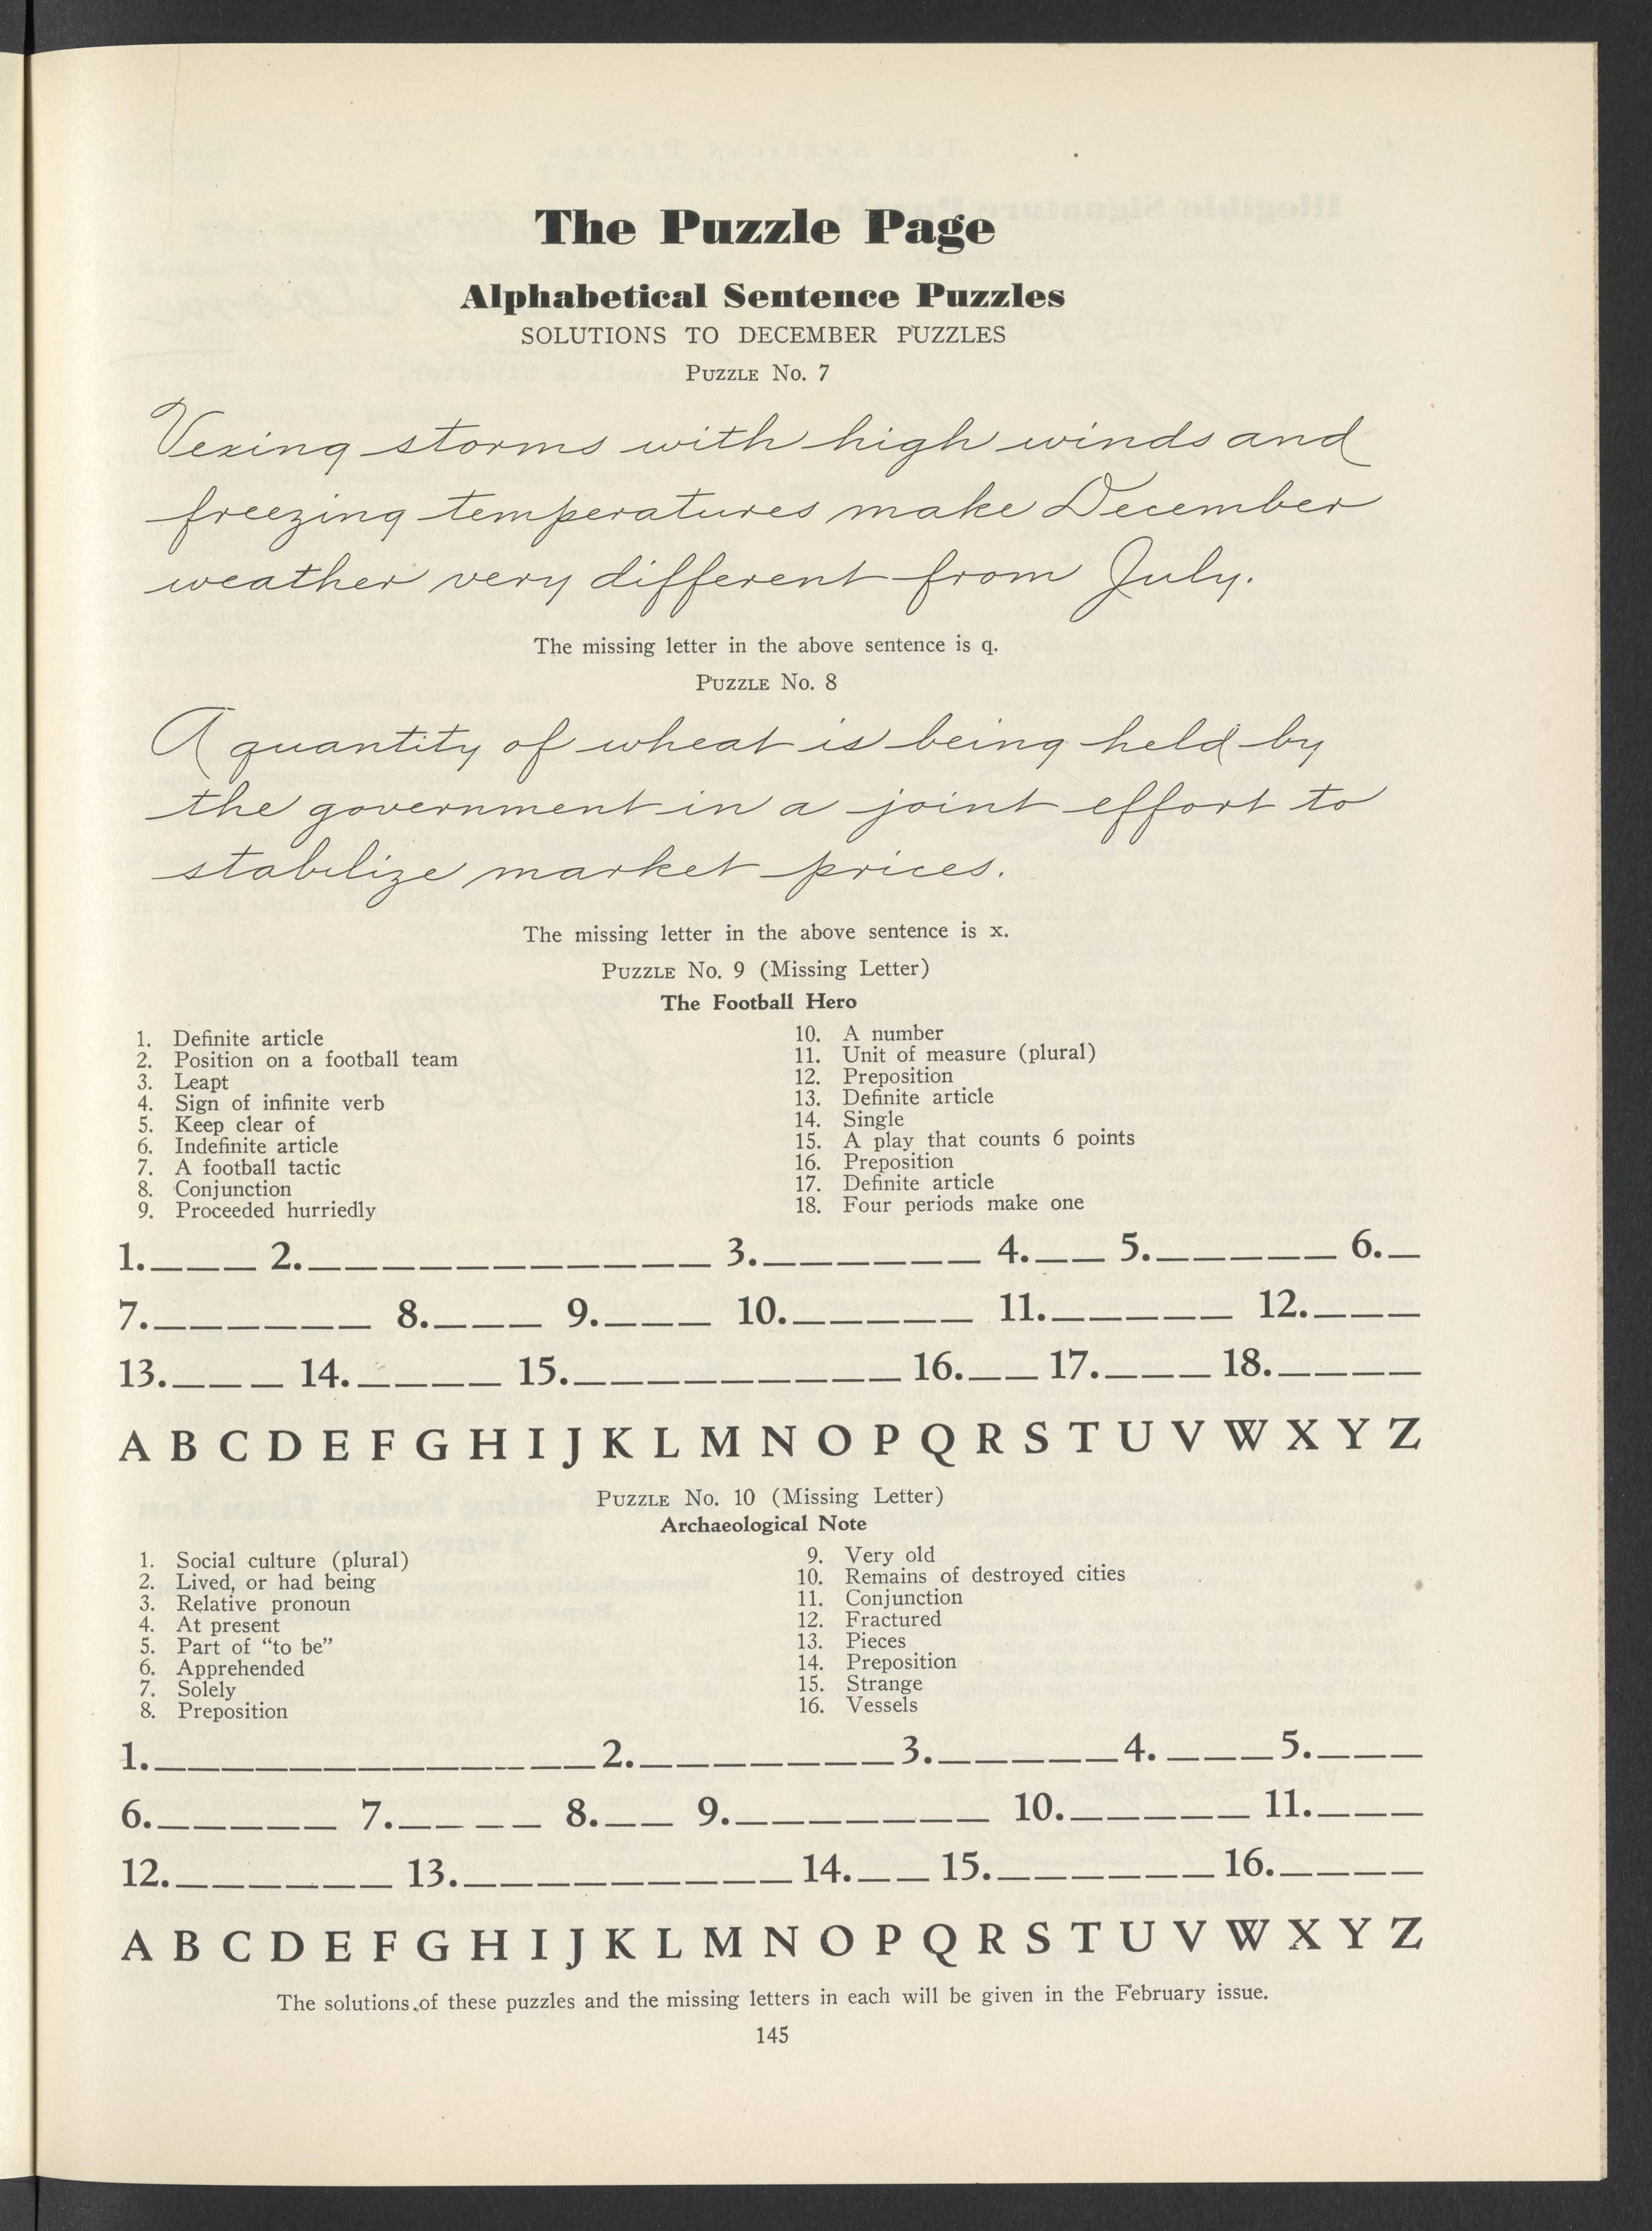 The Puzzle Page
Alphabetical Sentence Puzzles
SOLUTIONS TO DECEMBER PUZZLES
Puzzle No. 7
Vexing storms with high winds and
freezing temperatures make December
weather very different from July.
The missing letter in the above sentence is q.
Puzzle No. 8
A quantity of wheat is being held by
the government in a joint effort to
stabilize market prices.
The missing letter in the above sentence is x.
Puzzle No. 9 (Missing Letter)
The Football Hero
1. Definite article
2. Position on a football team
3. Leapt
4. Sign of infinite verb
5. Keep clear of
6. Indefinite article
7. A football tactic
8. Conjunction
9. Proceeded hurriedly
10. A number
11. Unit of measure (plural)
12. Preposition
13. Definite article
14. Single
15. A play that counts 6 points
16. Preposition
17. Definite article
18. Four periods make one
1.___ 2.____________ 3._______ 4.__ 5.______ 6._
7._______ 8.___ 9.___ 10._____ 11.______ 12.___
13.___ 14.____ 15._________ 16.__ 17.___ 18.____
A B C D E F G H I J K L M N O P Q R S T U V W X Y Z
Puzzle No. 10 (Missing Letter)
Archaeological Note
1. Social culture (plural)
2. Lived, or had being
3. Relative pronoun
4. At present
5. Part of "to be"
6. Apprehended
7. Solely
8. Preposition
9. Very old
10. Remains of destroyed cities
11. Conjunction
12. Fractured
13. Pieces
14. Preposition
15. Strange
16. Vessels
1._____________ 2._______ 3._____ 4.___ 5.___
6._____ 7.____ 8.__ 9._______ 10._____ 11.___
12.______ 13._________ 14.__ 15.______ 16.____
A B C D E F G H I J K L M N O P Q R S T U V W X Y Z
The solutions of these puzzles and the missing letters in each will be given in the February issue.
145